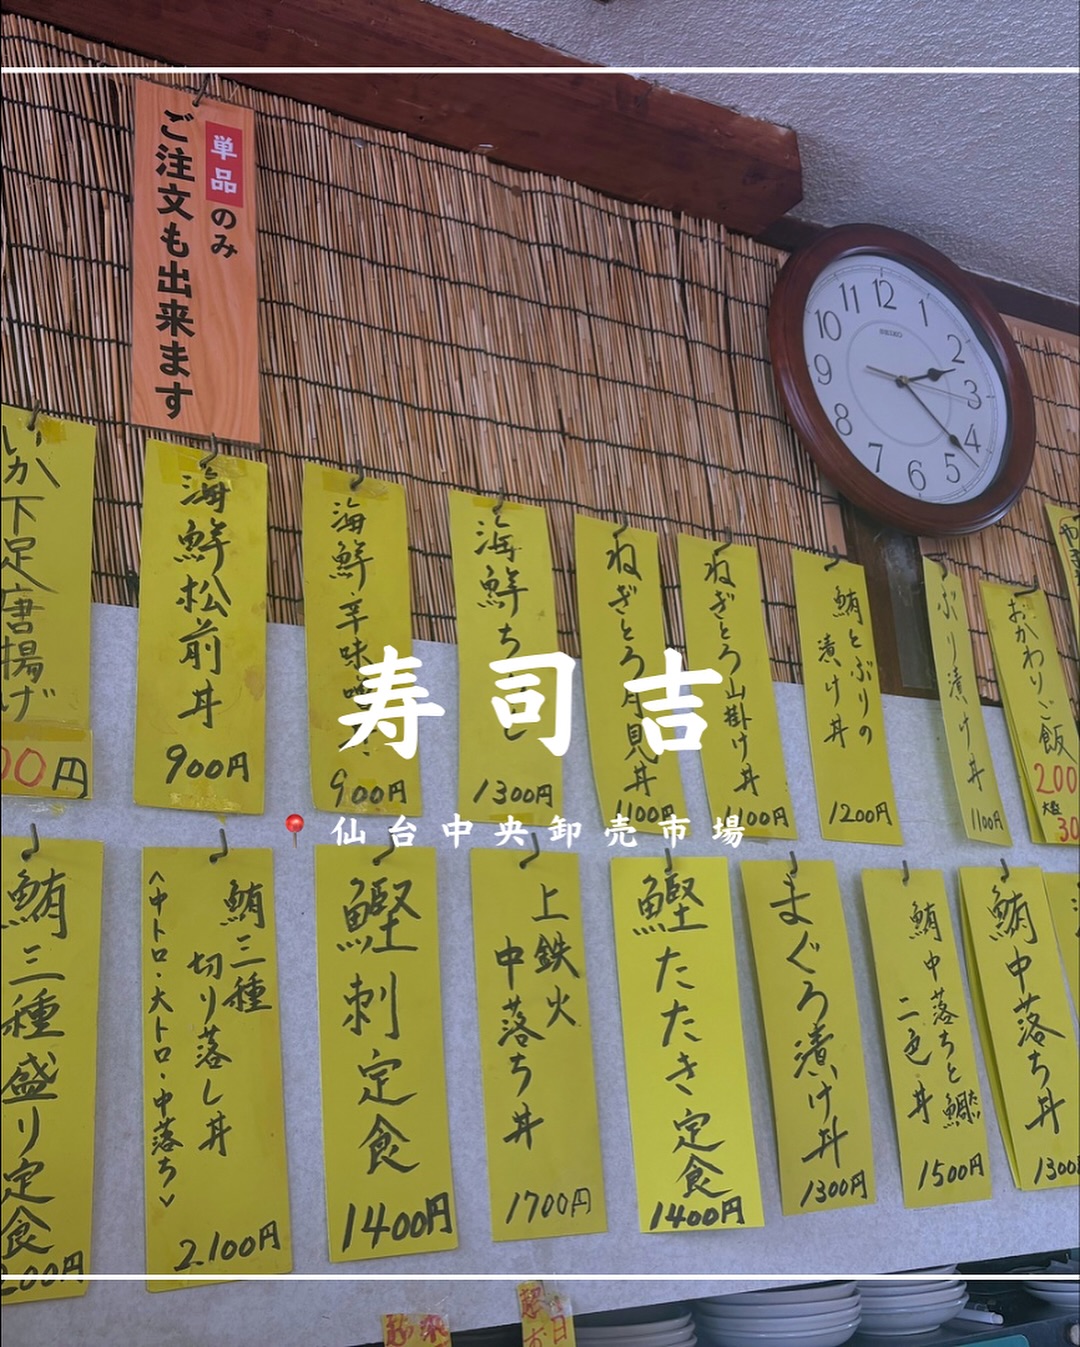 単品のみ
ご注文も出来ます
12
1
2
3
4
5
6
7
8
9
10
11
SEIKO
いか下足唐揚げ
00円
海鮮松前丼
900円
海鮮辛味
900円
海鮮ち
1300円
ねぎとろ月見丼
1100円
ねぎとろ山掛け丼
1100円
鮪とぶりの
漬け丼
1200円
ぶり漬け丼
1100円
おかわりご飯
200
大盛
30
寿司吉
仙台中央卸売市場
鮪三種盛り定食
200円
鮪三種
切り落し丼
<中トロ・大トロ・中落ち>
2.100円
鰹刺定食
1400円
上鉄火
中落ち丼
1700円
鰹たたき定食
1400円
まぐろ漬け丼
1300円
鮪中落ちと鰹
二色丼
1500円
鮪中落ち丼
1300